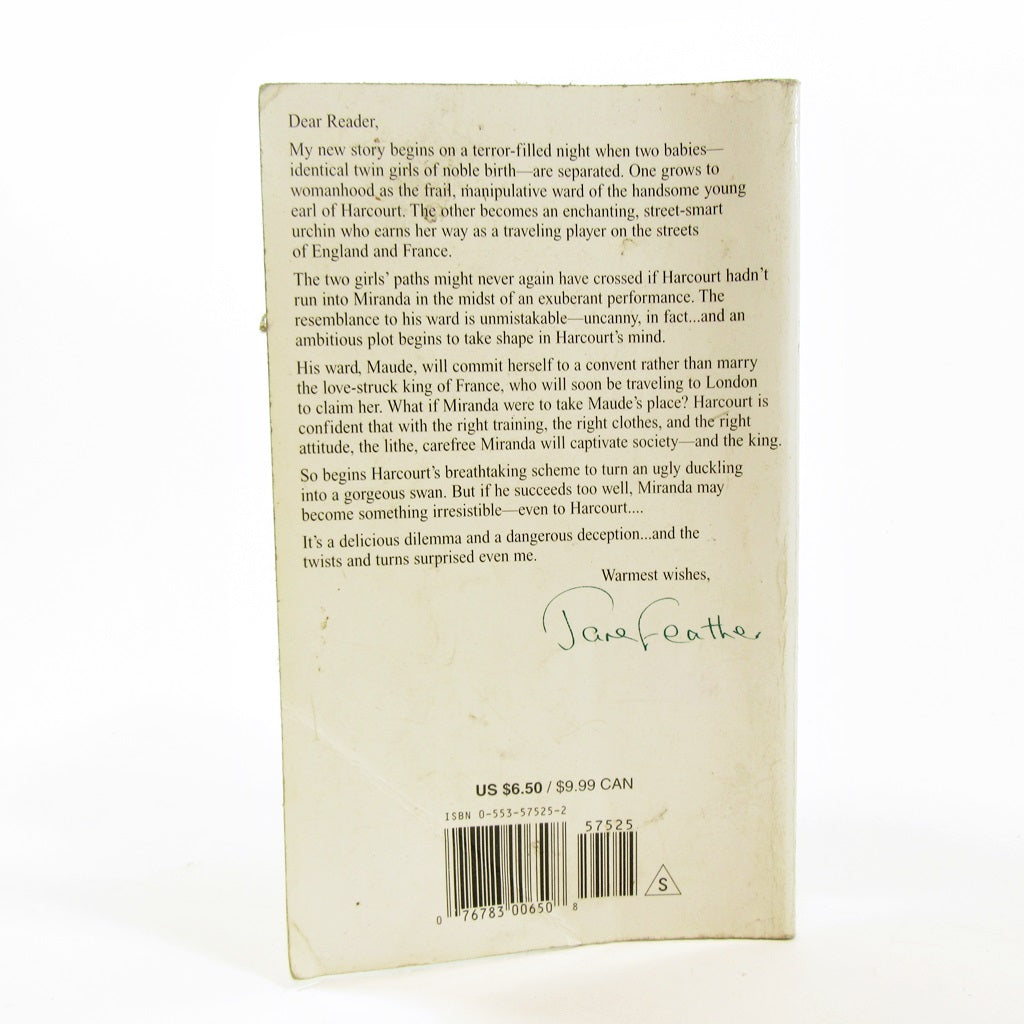 Dear Reader,
My new story begins on a terror-filled night when two babies—
identical twin girls of noble birth—are separated. One grows to
womanhood as the frail, manipulative ward of the handsome young
earl of Harcourt. The other becomes an enchanting, street-smart
urchin who earns her way as a traveling player on the streets
of England and France.
The two girls' paths might never again have crossed if Harcourt hadn't
run into Miranda in the midst of an exuberant performance. The
resemblance to his ward is unmistakable—uncanny, in fact...and an
ambitious plot begins to take shape in Harcourt's mind.
His ward, Maude, will commit herself to a convent rather than marry
the love-struck king of France, who will soon be traveling to London
to claim her. What if Miranda were to take Maude's place? Harcourt is
confident that with the right training, the right clothes, and the right
attitude, the lithe, carefree Miranda will captivate society—and the king.
So begins Harcourt's breathtaking scheme to turn an ugly duckling
into a gorgeous swan. But if he succeeds too well, Miranda may
become something irresistible—even to Harcourt....
It's a delicious dilemma and a dangerous deception...and the
twists and turns surprised even me.
Warmest wishes,
Jane Feather
US $6.50 / $9.99 CAN
ISBN 0-553-57525-2
57525
0 76783 00650 8
S